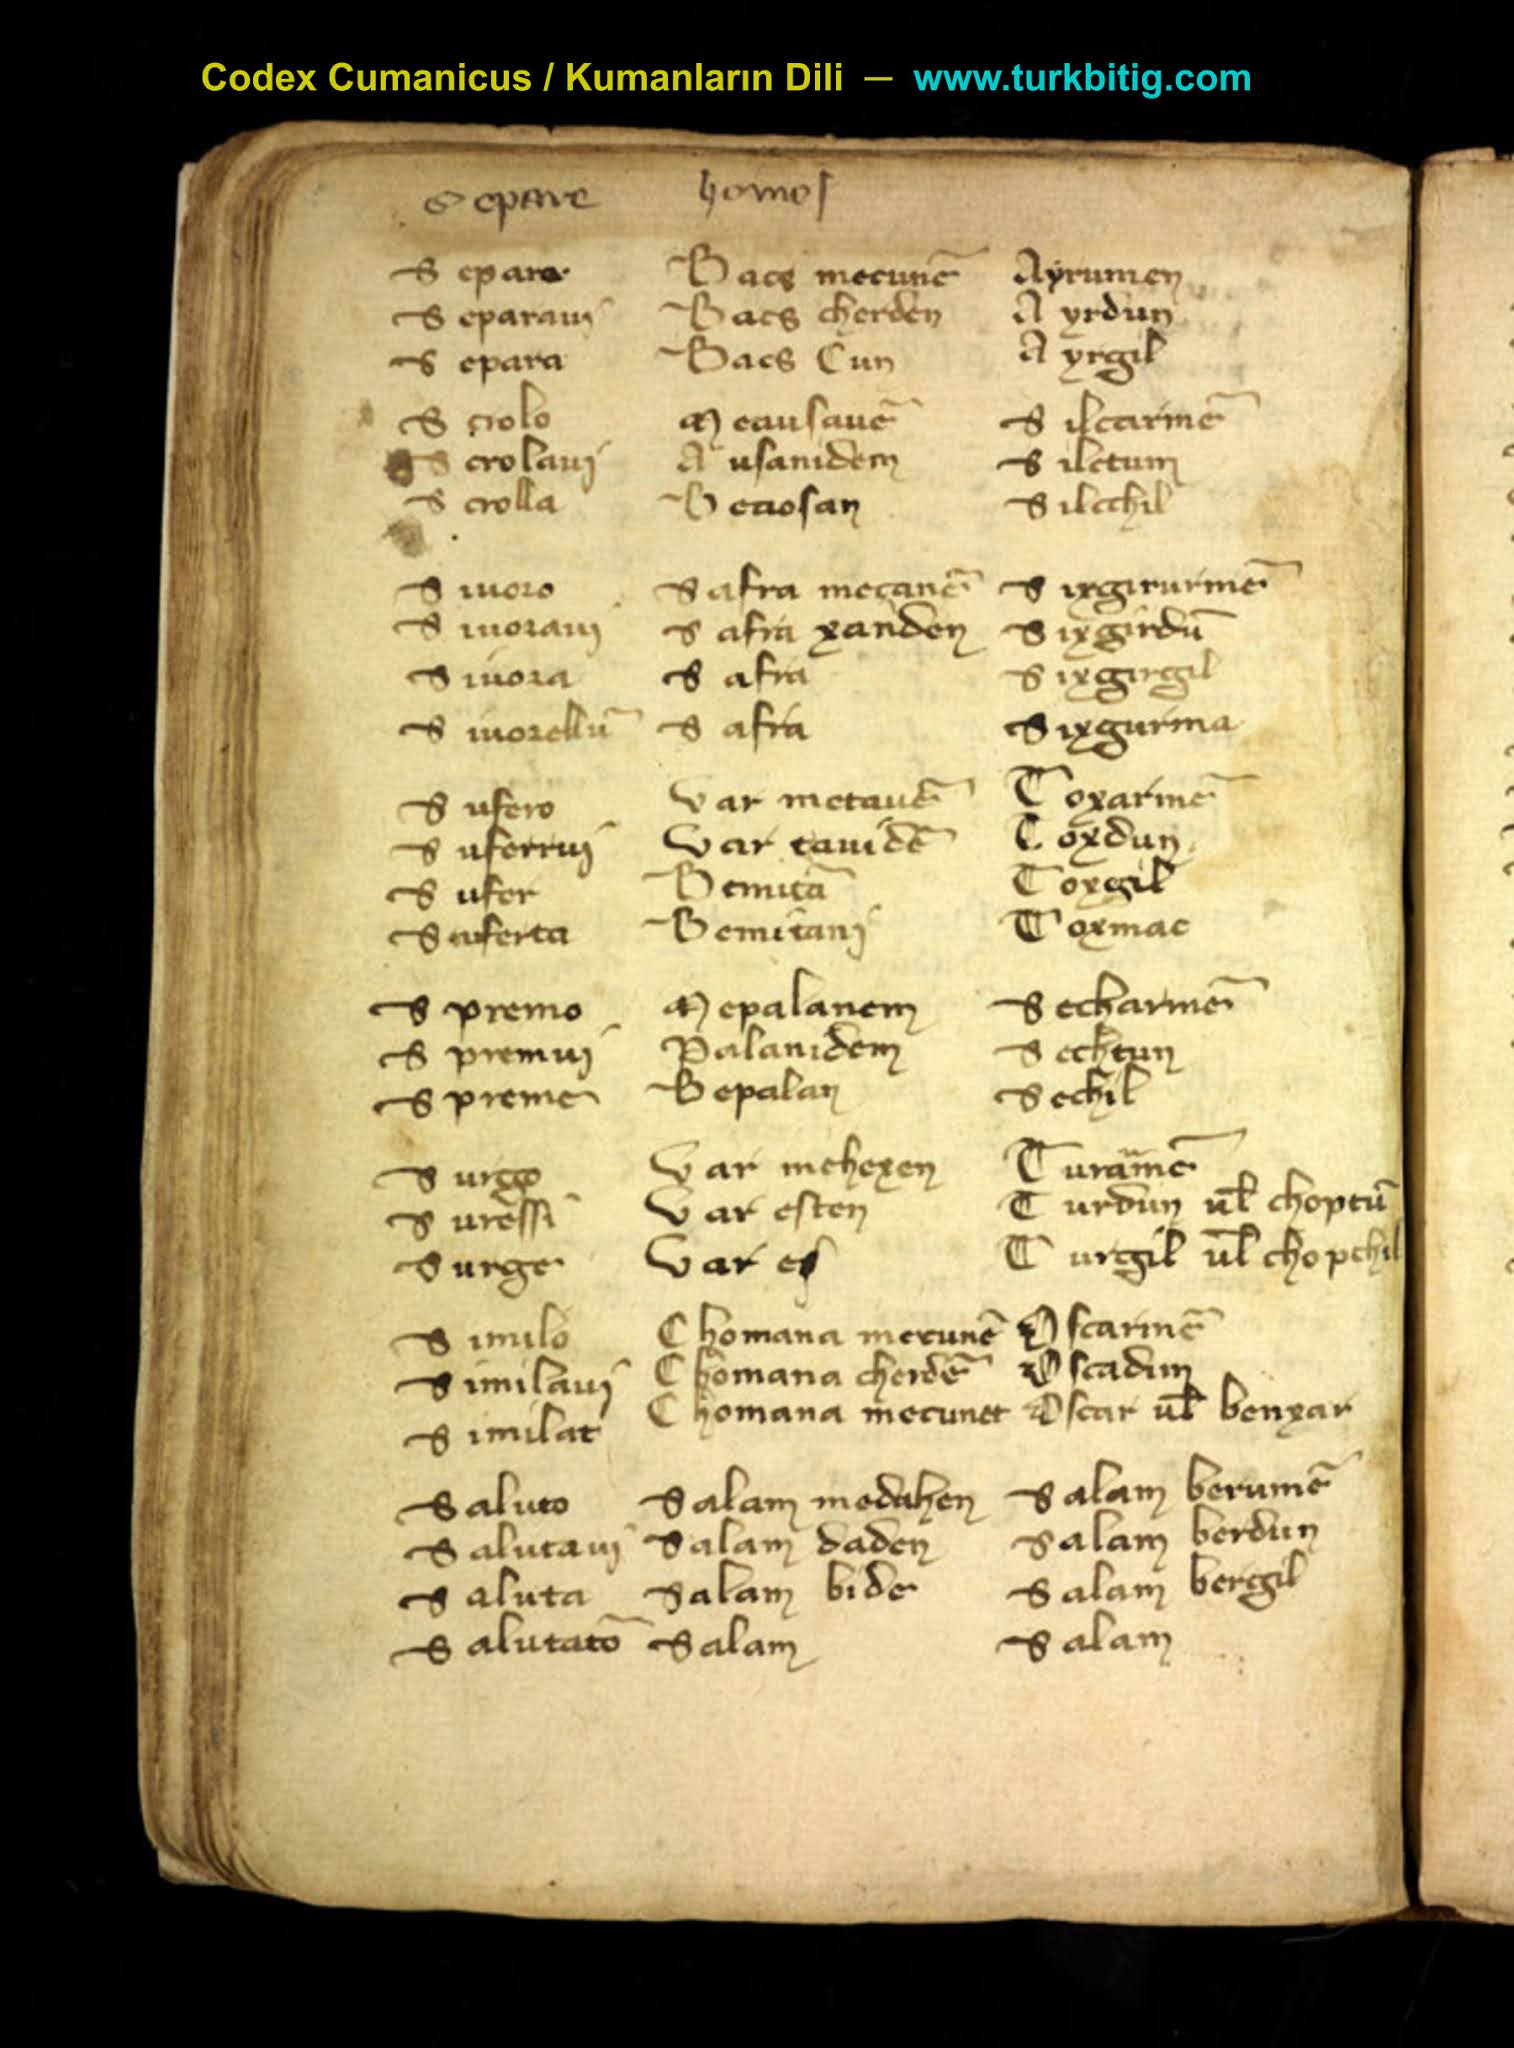 Codex Cumanicus / Kumanların Dili — www.turkbitig.com
Separe homo
Separo Bacs mecunē Ayrumen
Separaui Bacs cherden Ayrdun
Separa Bacs Cun Ayrgil
Scrolo Meausauē Silcarmē
Scrolaui Ausanidem Silctum
Scrolla Beaosan Silcchil
Siuoro Safra meçanē Sixgirurmē
Siuoraui Safra xanden Sixgirdū
Siuora Safra Sixgirgil
Siuorellū Safra Sixgurma
Sufero Var metauē Toxarmē
Suferrui Var tauidē Toxdun
Sufer Bemitā Toxgil
Suferta Bemitani Toxmac
Spremo Mepalanem Secharmē
Spremui Palanidem Sechtun
Spreme Bepalan Sechil
Surgo Var mehexen Turamē
Suressi Var esten Turdun ul̄ choptū
Surge Var es Turgil ul̄ chopchil
Similo Chomana mecunē Oscarmē
Similaui Chomana cherdē Oscadim
Similat Chomana mecunet Oscar ul̄ benxar
Saluto Salam medahen Salam berumē
Salutaui Salam daden Salam berdun
Saluta Salam bide Salam bergil
Salutatō Salam Salam